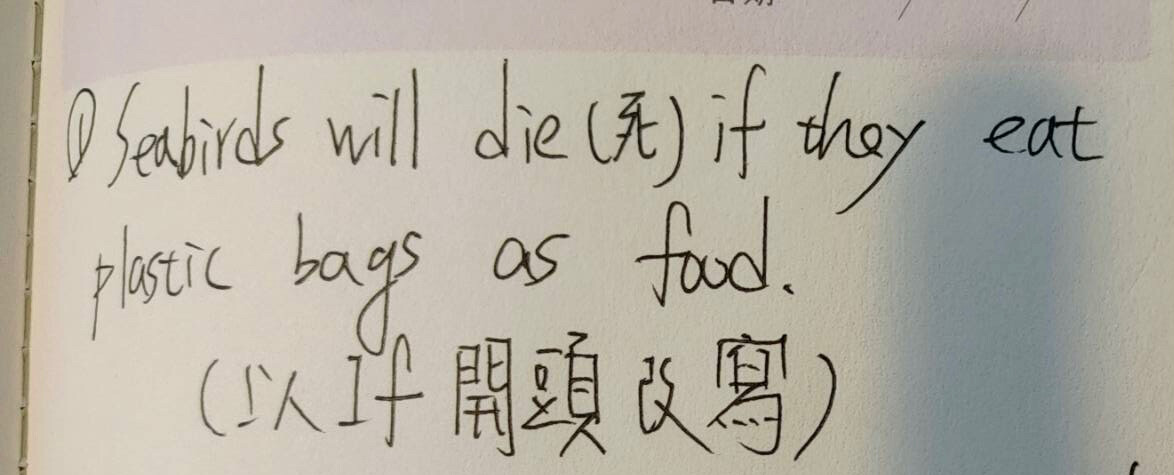 ① Seabirds will die (死) if they eat
plastic bags as food.
(以 If 開頭改寫)